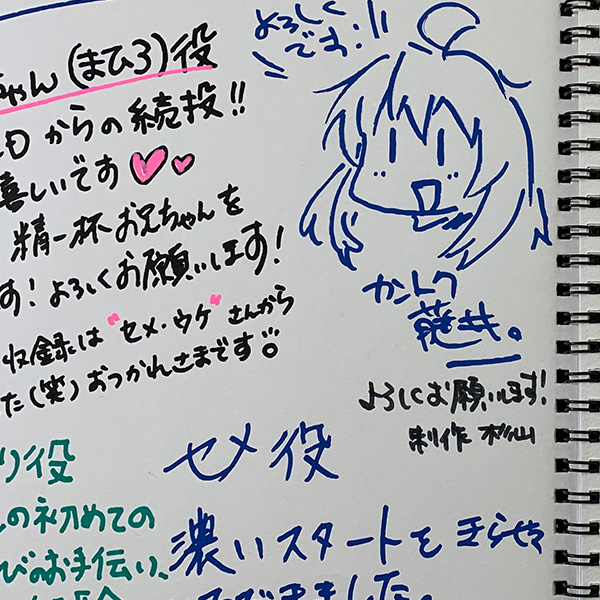 よろしく
です!!
ちゃん(まひろ)役
からの続投!!
喜しいです♥♥
精一杯お兄ちゃんを
す!よろしくお願いします!
収録は"セメ・ウケ"さんから
た(笑)おつかれさまです
カントク
よろしくお願いします!
制作 杉山
り役
の初めての
びのお手伝い、
セメ役
濃いスタートを きらせて